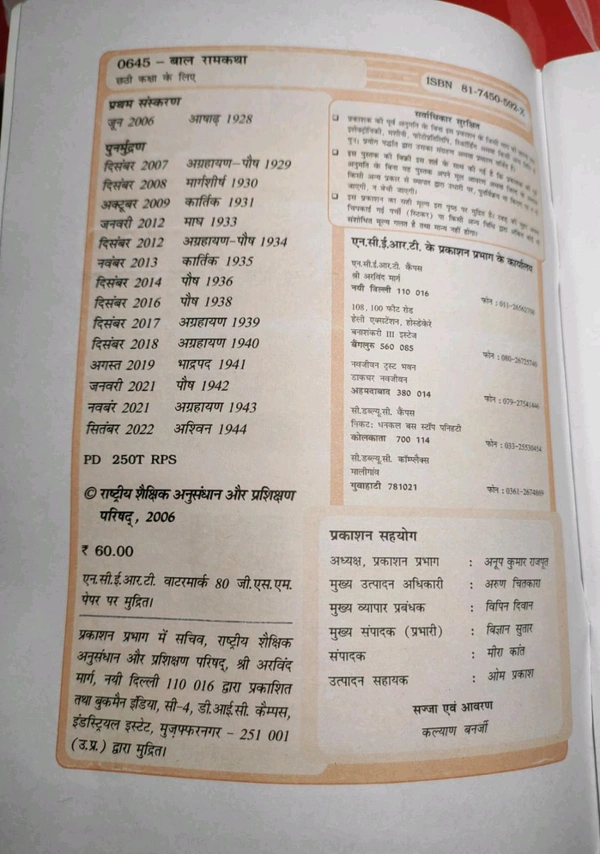 0645 – बाल रामकथा
छठी कक्षा के लिए
ISBN 81-7450-502-X
प्रथम संस्करण
जून 2006 आषाढ़ 1928
पुनर्मुद्रण
दिसंबर 2007 अग्रहायण–पौष 1929
दिसंबर 2008 मार्गशीर्ष 1930
अक्टूबर 2009 कार्तिक 1931
जनवरी 2012 माघ 1933
दिसंबर 2012 अग्रहायण–पौष 1934
नवंबर 2013 कार्तिक 1935
दिसंबर 2014 पौष 1936
दिसंबर 2016 पौष 1938
दिसंबर 2017 अग्रहायण 1939
दिसंबर 2018 अग्रहायण 1940
अगस्त 2019 भाद्रपद 1941
जनवरी 2021 पौष 1942
नवबंर 2021 अग्रहायण 1943
सितंबर 2022 अश्विन 1944
PD 250T RPS
© राष्ट्रीय शैक्षिक अनुसंधान और प्रशिक्षण
परिषद्, 2006
₹ 60.00
एन.सी.ई.आर.टी. वाटरमार्क 80 जी.एस.एम.
पेपर पर मुद्रित।
प्रकाशन प्रभाग में सचिव, राष्ट्रीय शैक्षिक
अनुसंधान और प्रशिक्षण परिषद्, श्री अरविंद
मार्ग, नयी दिल्ली 110 016 द्वारा प्रकाशित
तथा बुकमैन इंडिया, सी-4, डी.आई.सी. कैम्पस,
इंडस्ट्रियल इस्टेट, मुज़फ्फरनगर – 251 001
(उ.प्र.) द्वारा मुद्रित।
सर्वाधिकार सुरक्षित
❑ प्रकाशक की पूर्व अनुमति के बिना इस प्रकाशन के किसी भाग को
❑ इस पुस्तक की बिक्री इस शर्त के साथ की गई है कि प्रकाशक की पूर्व
❑ इस प्रकाशन का सही मूल्य इस पृष्ठ पर मुद्रित है।
संशोधित मूल्य गलत है तथा मान्य नहीं होगा।
एन.सी.ई.आर.टी. के प्रकाशन प्रभाग के कार्यालय
एन.सी.ई.आर.टी. कैंपस
श्री अरविंद मार्ग
नयी दिल्ली 110 016 फोन : 011-26562708
108, 100 फीट रोड
हेली एक्सटेंशन, होस्डेकेरे
बनाशंकरी III इस्टेज
बैंगलुरु 560 085 फोन : 080-26725740
नवजीवन ट्रस्ट भवन
डाकघर नवजीवन
अहमदाबाद 380 014 फोन : 079-27541446
सी.डब्ल्यू.सी. कैंपस
निकट: धनकल बस स्टॉप पनिहटी
कोलकाता 700 114 फोन : 033-25530454
सी.डब्ल्यू.सी. कॉम्प्लैक्स
मालीगांव
गुवाहाटी 781021 फोन : 0361-2674869
प्रकाशन सहयोग
अध्यक्ष, प्रकाशन प्रभाग : अनूप कुमार राजपूत
मुख्य उत्पादन अधिकारी : अरुण चितकारा
मुख्य व्यापार प्रबंधक : विपिन दिवान
मुख्य संपादक (प्रभारी) : बिज्ञान सुतार
संपादक : मीरा कांत
उत्पादन सहायक : ओम प्रकाश
सज्जा एवं आवरण
कल्याण बनर्जी